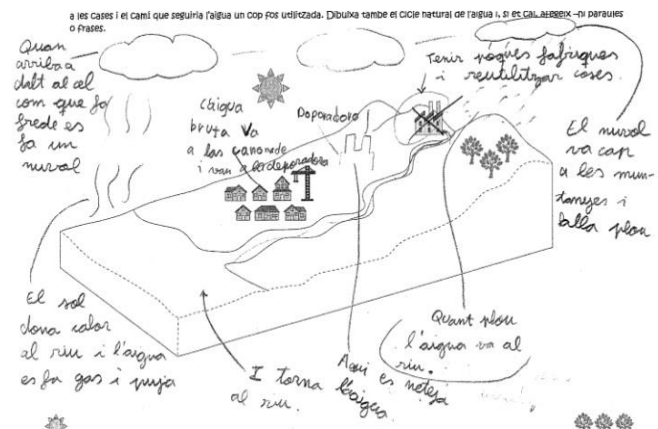 a les cases i el camí que seguiria l'aigua un cop fos utilitzada. Dibuixa també el cicle natural de l'aigua i, si et cal, afegeix-hi paraules
o frases.
Quan
arriba a
dalt al cel
com que fa
frede es
fa un
nuvol
L'aigua
bruta va
a las canonade
i van a la deporadora
Doporadora
Tenir poques fabriques
i reutilitzar coses.
El nuvol
va cap
a les mun-
tanyes i
falla plou
El sol
dona calor
al riu i l'aigua
es fa gas i puja
I torna
al riu.
Aqui es neteja
l'aigua
Quant plou
l'aigua va al
riu.